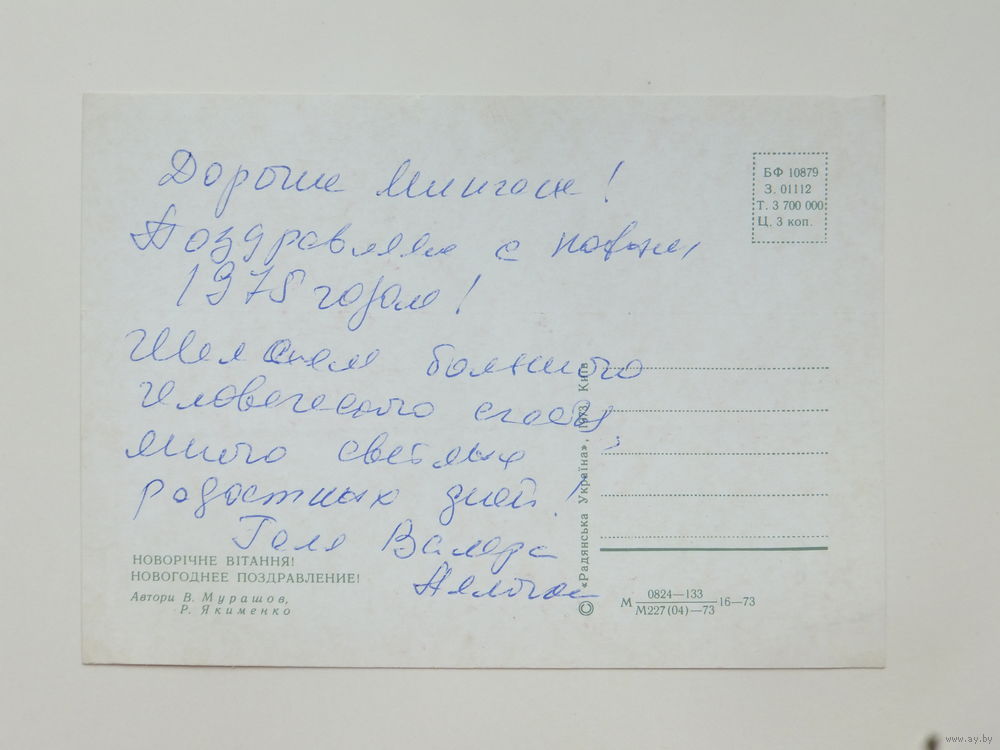 Дорогие !
Поздравляем с новым
1975 годом!
Желаем большого
человеческого счастья,
много светлых
радостных дней!
Галя Валера
НОВОРІЧНЕ ВІТАННЯ!
НОВОГОДНЕЕ ПОЗДРАВЛЕНИЕ!
Автори В. Мурашов,
Р. Якименко
© «Радянська Україна», 1973, Київ
БФ 10879
З. 01112
Т. 3 700 000
Ц. 3 коп.
М 0824—133 16—73
М227(04)—73
www.ay.by